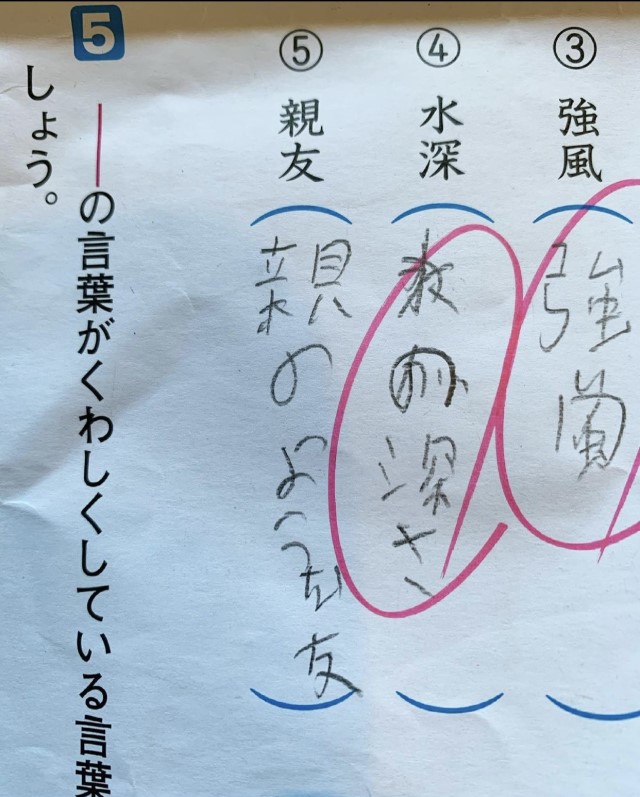 ③ 強風
（強風
④ 水深
（の深さ）
⑤ 親友
（親のような友）
5 ――の言葉がくわしくしている言葉
しょう。